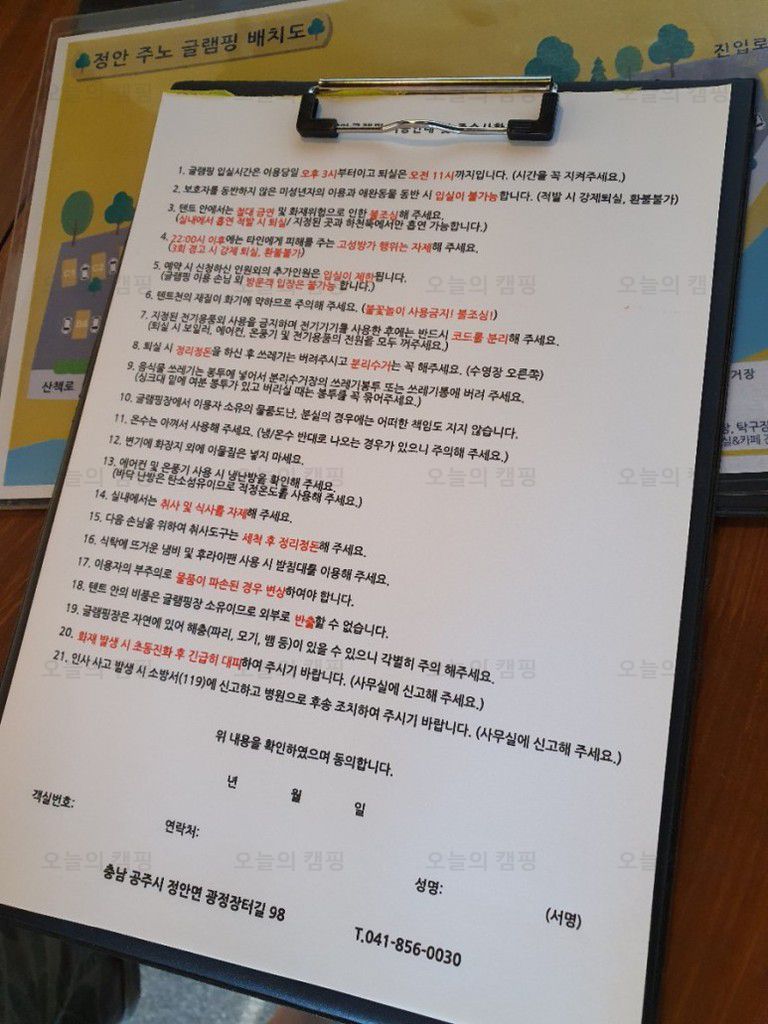 정안 주노 글램핑 배치도
진입로
산책로
1. 글램핑 입실시간은 이용당일 오후 3시부터이고 퇴실은 오전 11시까지입니다. (시간을 꼭 지켜주세요.)
2. 보호자를 동반하지 않은 미성년자의 이용과 애완동물 동반 시 입실이 불가능합니다. (적발 시 강제퇴실, 환불불가)
3. 텐트 안에서는 절대 금연 및 화재위험으로 인한 불조심해 주세요.
(실내에서 흡연 적발 시 퇴실/ 지정된 곳과 하천쪽에서만 흡연 가능합니다.)
4. 22:00시 이후에는 타인에게 피해를 주는 고성방가 행위는 자제해 주세요.
(3회 경고 시 강제 퇴실, 환불불가)
5. 예약 시 신청하신 인원외의 추가인원은 입실이 제한됩니다.
(글램핑 이용 손님 외 방문객 입장은 불가능 합니다.)
6. 텐트천의 재질이 화기에 약하므로 주의해 주세요. (불꽃놀이 사용금지! 불조심!)
7. 지정된 전기용품외 사용을 금지하며 전기기기를 사용한 후에는 반드시 코드를 분리해 주세요.
(퇴실 시 보일러, 에어컨, 온풍기 및 전기용품의 전원을 모두 꺼주세요.)
8. 퇴실 시 정리정돈을 하신 후 쓰레기는 버려주시고 분리수거는 꼭 해주세요. (수영장 오른쪽)
9. 음식물 쓰레기는 봉투에 넣어서 분리수거장의 쓰레기봉투 또는 쓰레기통에 버려 주세요.
(싱크대 밑에 여분 봉투가 있고 버리실 때는 봉투를 꼭 묶어주세요.)
10. 글램핑장에서 이용자 소유의 물품도난, 분실의 경우에는 어떠한 책임도 지지 않습니다.
11. 온수는 아껴서 사용해 주세요. (냉/온수 반대로 나오는 경우가 있으니 주의해 주세요.)
12. 변기에 화장지 외에 이물질은 넣지 마세요.
13. 에어컨 및 온풍기 사용 시 냉난방을 확인해 주세요.
(바닥 난방은 탄소섬유이므로 적정온도를 사용해 주세요.)
14. 실내에서는 취사 및 식사를 자제해 주세요.
15. 다음 손님을 위하여 취사도구는 세척 후 정리정돈해 주세요.
16. 식탁에 뜨거운 냄비 및 후라이팬 사용 시 받침대를 이용해 주세요.
17. 이용자의 부주의로 물품이 파손된 경우 변상하여야 합니다.
18. 텐트 안의 비품은 글램핑장 소유이므로 외부로 반출할 수 없습니다.
19. 글램핑장은 자연에 있어 해충(파리, 모기, 뱀 등)이 있을 수 있으니 각별히 주의 해주세요.
20. 화재 발생 시 초동진화 후 긴급히 대피하여 주시기 바랍니다. (사무실에 신고해 주세요.)
21. 인사 사고 발생 시 소방서(119)에 신고하고 병원으로 후송 조치하여 주시기 바랍니다. (사무실에 신고해 주세요.)
위 내용을 확인하였으며 동의합니다.
년 월 일
객실번호:
연락처:
성명:
(서명)
충남 공주시 정안면 광정장터길 98
T.041-856-0030
거장
탁구장
실&카페
오늘의 캠핑